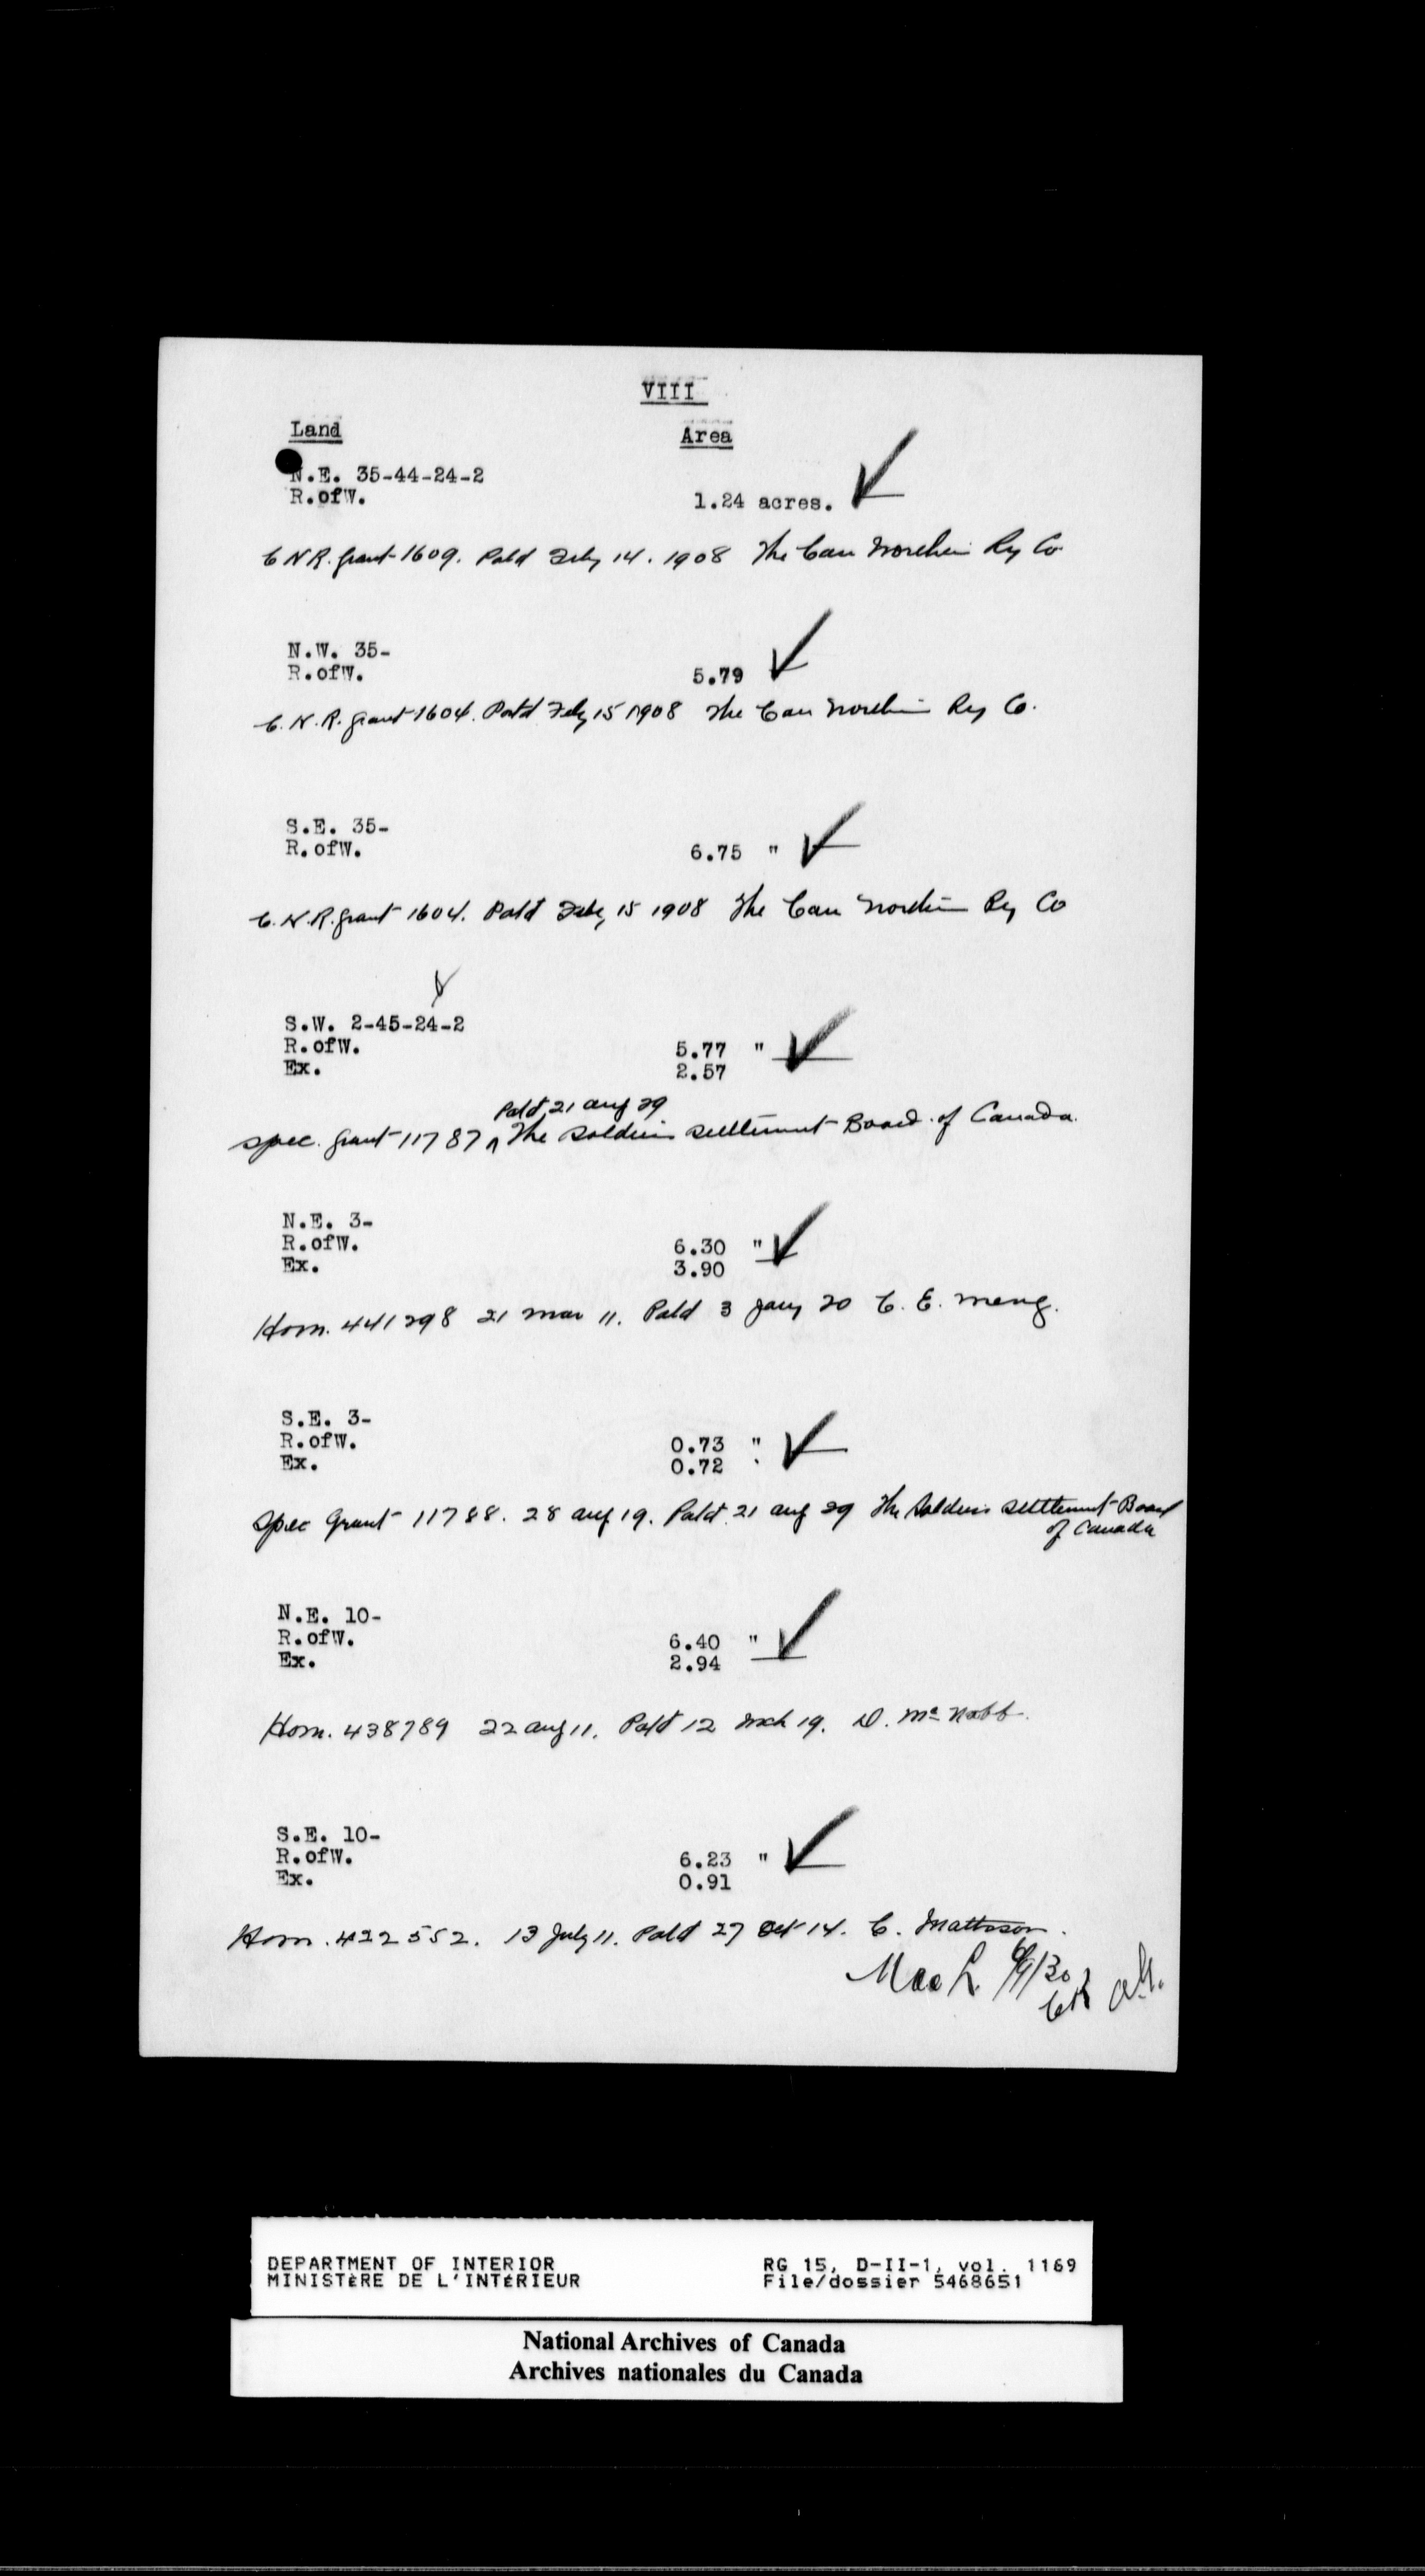 VIII
Land Area
N.E. 35-44-24-2
R.ofW. 1.24 acres.
C N R. grant 1609. Patd Feby 14. 1908 The Can Northern Ry Co
N.W. 35-
R.ofW. 5.79
C. N. R. grant 1604. Patd Feby 15 1908 The Can Northern Ry Co.
S.E. 35-
R.ofW. 6.75 "
C. N. R. grant 1604. Patd Feby 15 1908 The Can Northern Ry Co
S.W. 2-45-24-2
R.ofW. 5.77 "
Ex. 2.57
Patd 21 aug 29
Spec. grant 11787 ^ The Soldiers Settlement Board of Canada.
N.E. 3-
R.ofW. 6.30 "
Ex. 3.90
Hom. 441298 21 Mar 11. Patd 3 Jany 20 C. E. Meng.
S.E. 3-
R.ofW. 0.73 "
Ex. 0.72
Spec Grant 11788. 28 aug 19. Patd 21 aug 29 The Soldiers Settlement Board
of Canada
N.E. 10-
R.ofW. 6.40 "
Ex. 2.94
Hom. 438789 22 aug 11. Patd 12 Mch 19. D. McNabb.
S.E. 10-
R.ofW. 6.23 "
Ex. 0.91
Hom. 422552. 13 July 11. Patd 27 Oct 14. C. Mattson.
DEPARTMENT OF INTERIOR RG 15, D-II-1, vol. 1169
MINISTÈRE DE L'INTÉRIEUR File/dossier 5468651
National Archives of Canada
Archives nationales du Canada